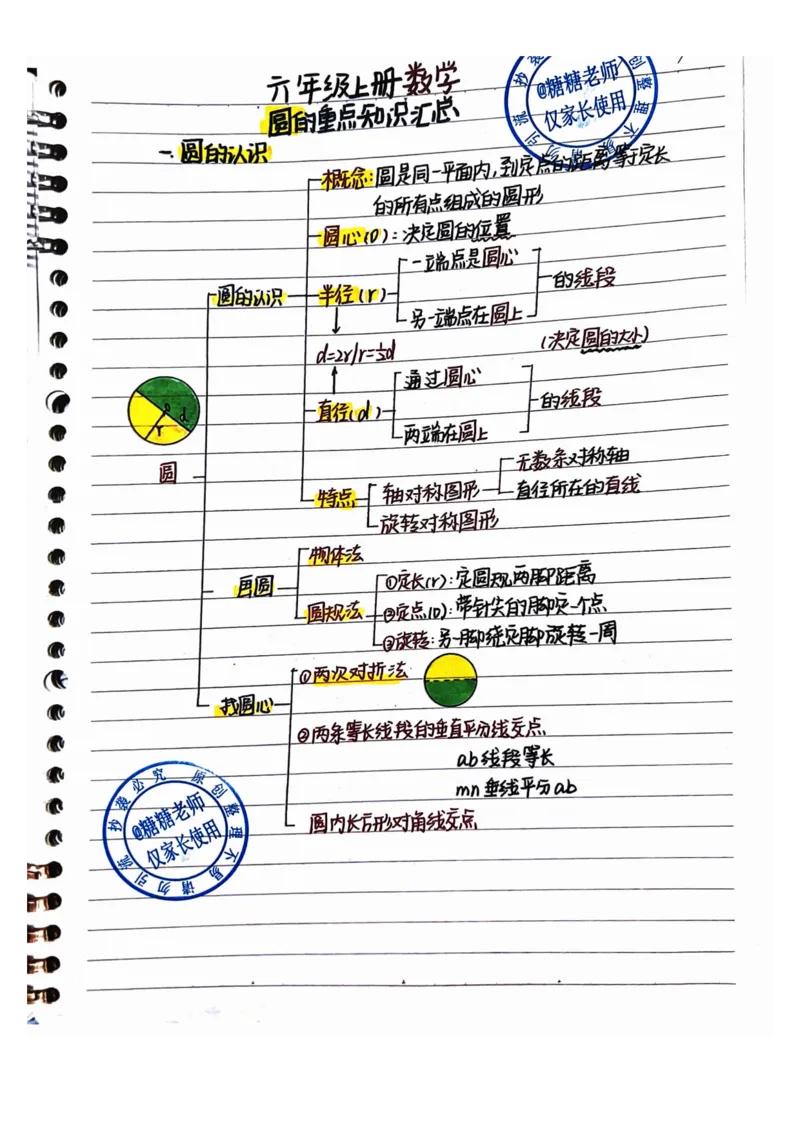 六年级上册数学
圆的重点知识汇总
一.圆的认识
概念:圆是同一平面内,到定点的距离等于定长
的所有点组成的圆形
圆心(O):决定圆的位置
一端点是圆心
圆的认识
半径(r)
的线段
另一端点在圆上
d=2r/r=½d
(决定圆的大小)
通过圆心
直径(d)
的线段
两端在圆上
O
d
r
圆
特点
轴对称图形
无数条对称轴
直径所在的直线
旋转对称图形
画圆
物体法
圆规法
①定长(r):定圆规两脚距离
②定点(O):带针尖的脚定一个点
③旋转:另一脚绕定脚旋转一周
找圆心
①两次对折法
②两条等长线段的垂直平分线交点
ab线段等长
mn垂线平分ab
圆内长方形对角线交点
@糖糖老师
仅家长使用
原创整理不易请勿引流抄袭必究
@糖糖老师
仅家长使用